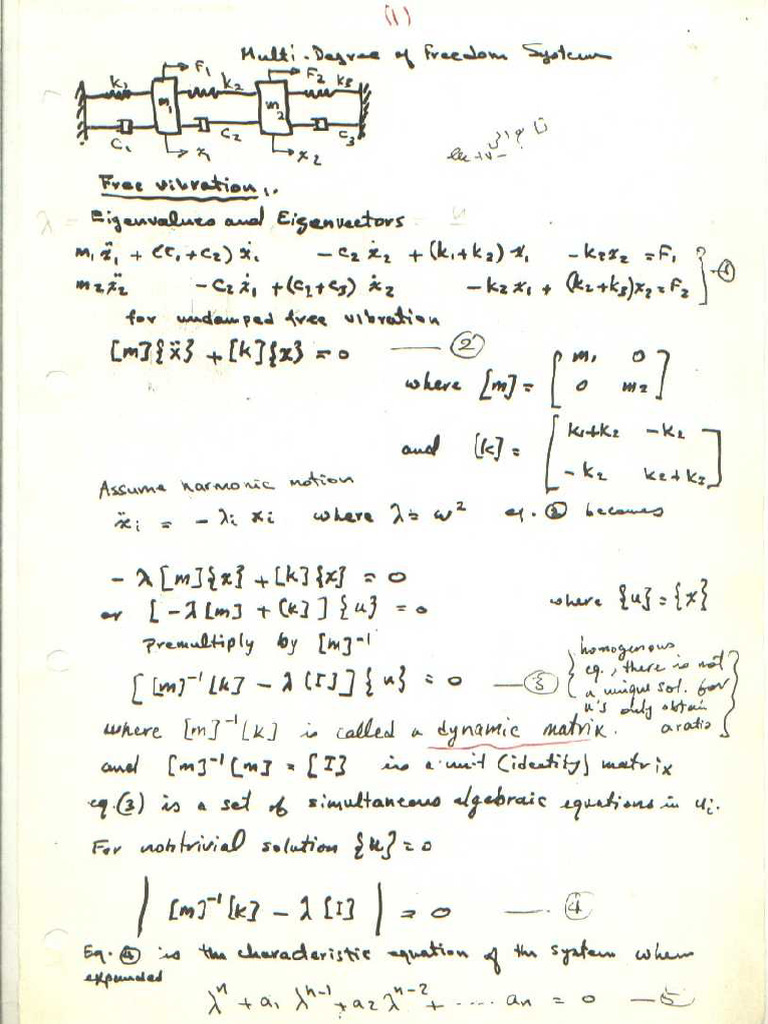 (1)
Multi-Degree of Freedom System
k1 F1 k2 F2 k3
m1 m2
c1 x1 c2 x2 c3
Free vibration,.
Eigenvalues and Eigenvectors
m1ẍ1 + (c1+c2) ẋ1 - c2 ẋ2 + (k1+k2) x1 - k2x2 = F1
m2ẍ2 - c2 ẋ1 + (c2+c3) ẋ2 - k2 x1 + (k2+k3)x2 = F2 — ①
for undamped free vibration
[m]{ẍ} + [k]{x} = 0 — ②
where [m] = [ m1 0
0 m2 ]
and [k] = [ k1+k2 -k2
-k2 k2+k3 ]
Assume harmonic motion
ẍi = - λi xi where λ = ω² eq. ② becomes
- λ [m]{x} + [k]{x} = 0
or [ -λ[m] + [k] ] {u} = 0 where {u} = {x}
Premultiply by [m]⁻¹
[ [m]⁻¹ [k] - λ [I] ] {u} = 0 — ③
homogenous
eq., there is not
a unique sol. for
u's only obtain
a ratio
where [m]⁻¹[k] is called a dynamic matrix.
and [m]⁻¹[m] = [I] is a unit (identity) matrix
eq.(3) is a set of simultaneous algebraic equations in ui.
For nontrivial solution {u} = 0
| [m]⁻¹[k] - λ [I] | = 0 — ④
Eq. ④ is the characteristic equation of the system when
expanded
λⁿ + a1 λⁿ⁻¹ + a2 λⁿ⁻² + ..... an = 0 — 5